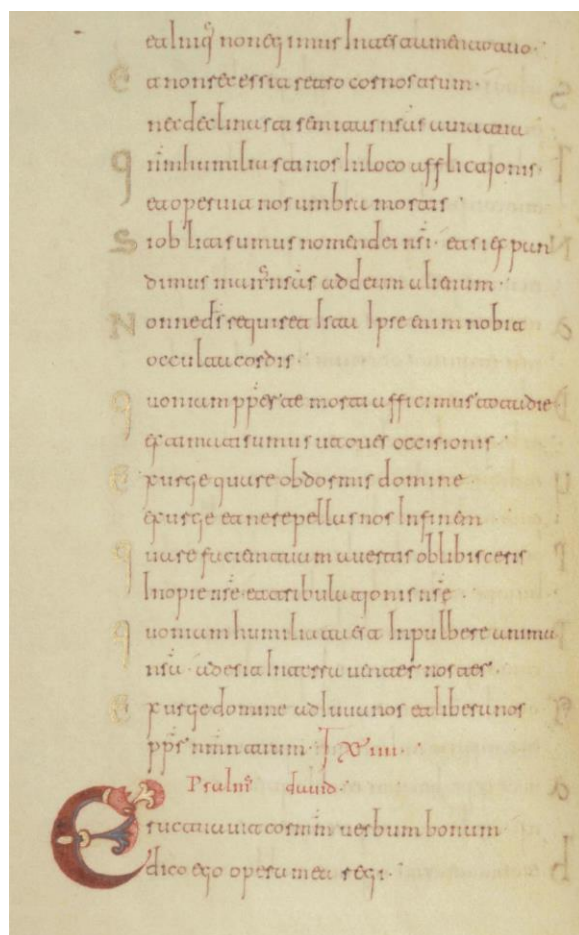 et iniq̄ non egimus In testamento tuo·
et non recessit a retro cor nostrum·
nec declinasti semitas nsas a uia tua
qnm humiliasti nos In loco afflictjonis·
et operuit nos umbra mortis·
Si obliti sumus nomen dei nsi· et si expan
dimus manus nsas ad deum alienum·
Nonne ds requiret Ista Ipse enim nobit
occulta cordis·
quoniam ppter te morti afficimur tota die
extimati sumus ut oues occisionis·
exurge quare obdormis domine
exurge et ne repellas nos In finem
quare faciem tuam auertis oblibisceris
Inopie nse et tribulatjonis nse·
quoniam humiliata est In pulbere anima
nsa· adesit In terra uenter noster·
exurge domine adiuua nos et libera nos
ppr nmn tuum·
Psalms dauid·
Eructauit cor mm uerbum bonum
dico ego opera mea regi·